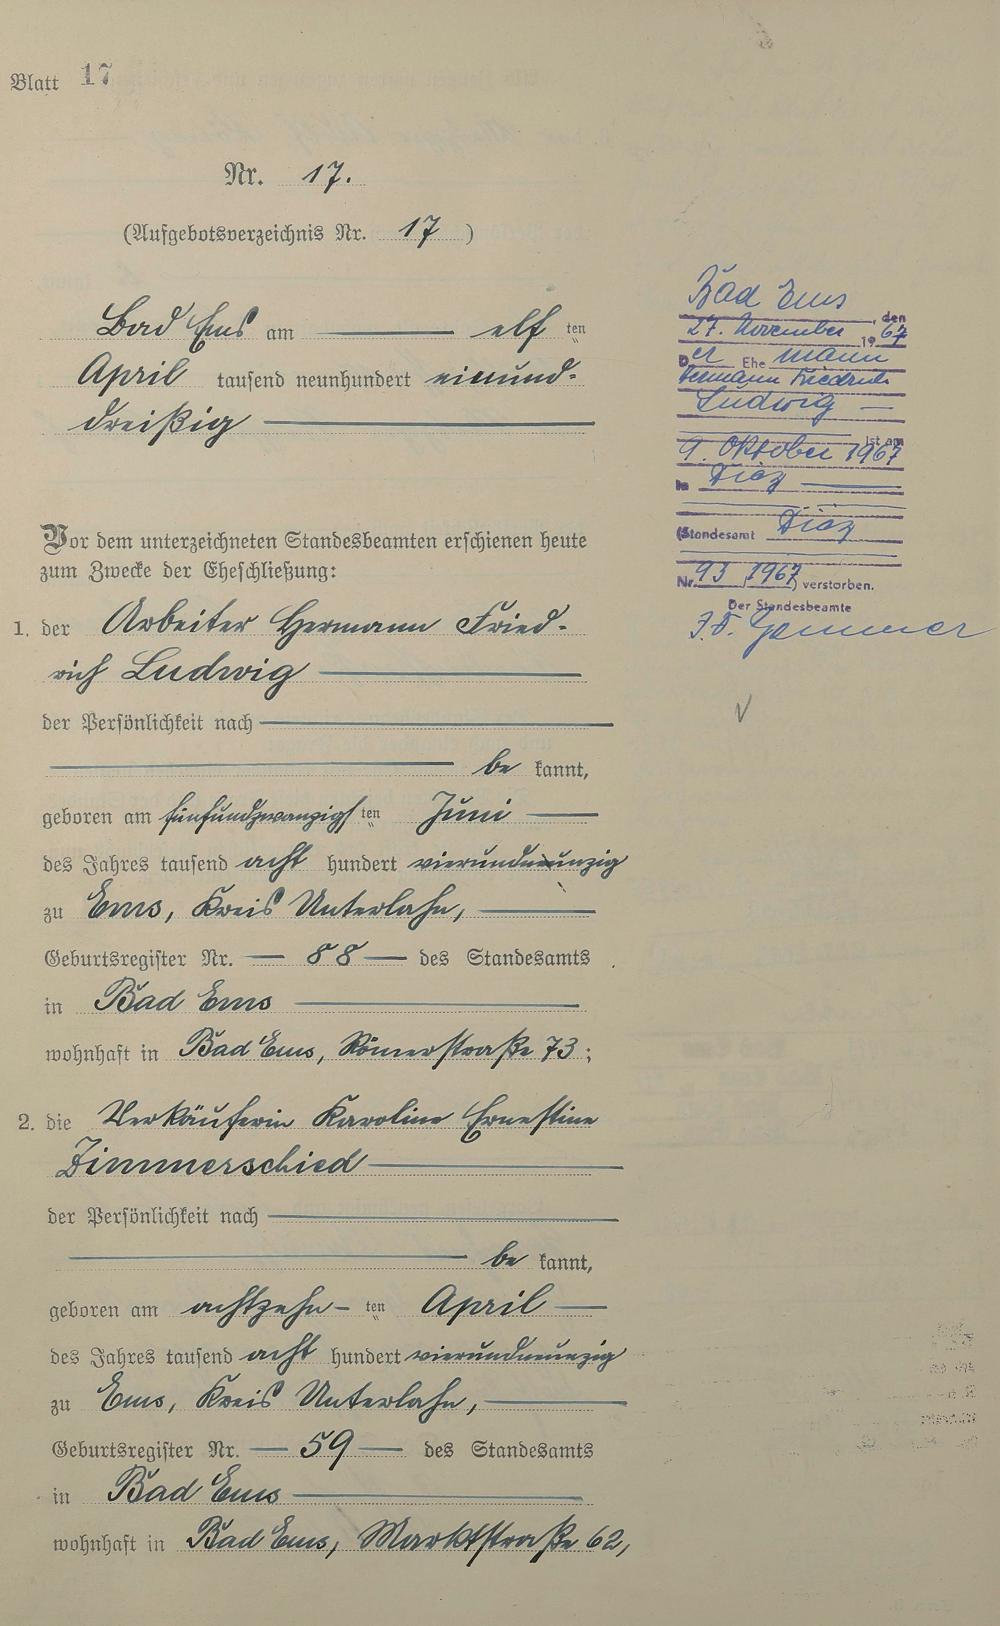 Blatt 17
Nr. 17.
(Aufgebotsverzeichnis Nr. 17)
Bad Ems am elf ten
April tausend neunhundert einund-
dreißig
Vor dem unterzeichneten Standesbeamten erschienen heute
zum Zwecke der Eheschließung:
1. der Arbeiter Hermann Fried-
rich Ludwig
der Persönlichkeit nach
be kannt,
geboren am fünfundzwanzigs ten Juni
des Jahres tausend acht hundert vierundneunzig
zu Ems, Kreis Unterlahn,
Geburtsregister Nr. 88 des Standesamts
in Bad Ems
wohnhaft in Bad Ems, Römerstraße 73;
2. die Verkäuferin Karoline Ernestine
Zimmerschied
der Persönlichkeit nach
be kannt,
geboren am achtzehn- ten April
des Jahres tausend acht hundert vierundneunzig
zu Ems, Kreis Unterlahn,
Geburtsregister Nr. 59 des Standesamts
in Bad Ems
wohnhaft in Bad Ems, Marktstraße 62,
Bad Ems, den
27. November 1967
Der Ehe mann
Hermann Friedrich
Ludwig
ist am
9. Oktober 1967
in Diez
(Standesamt Diez
Nr. 93 / 1967) verstorben.
Der Standesbeamte